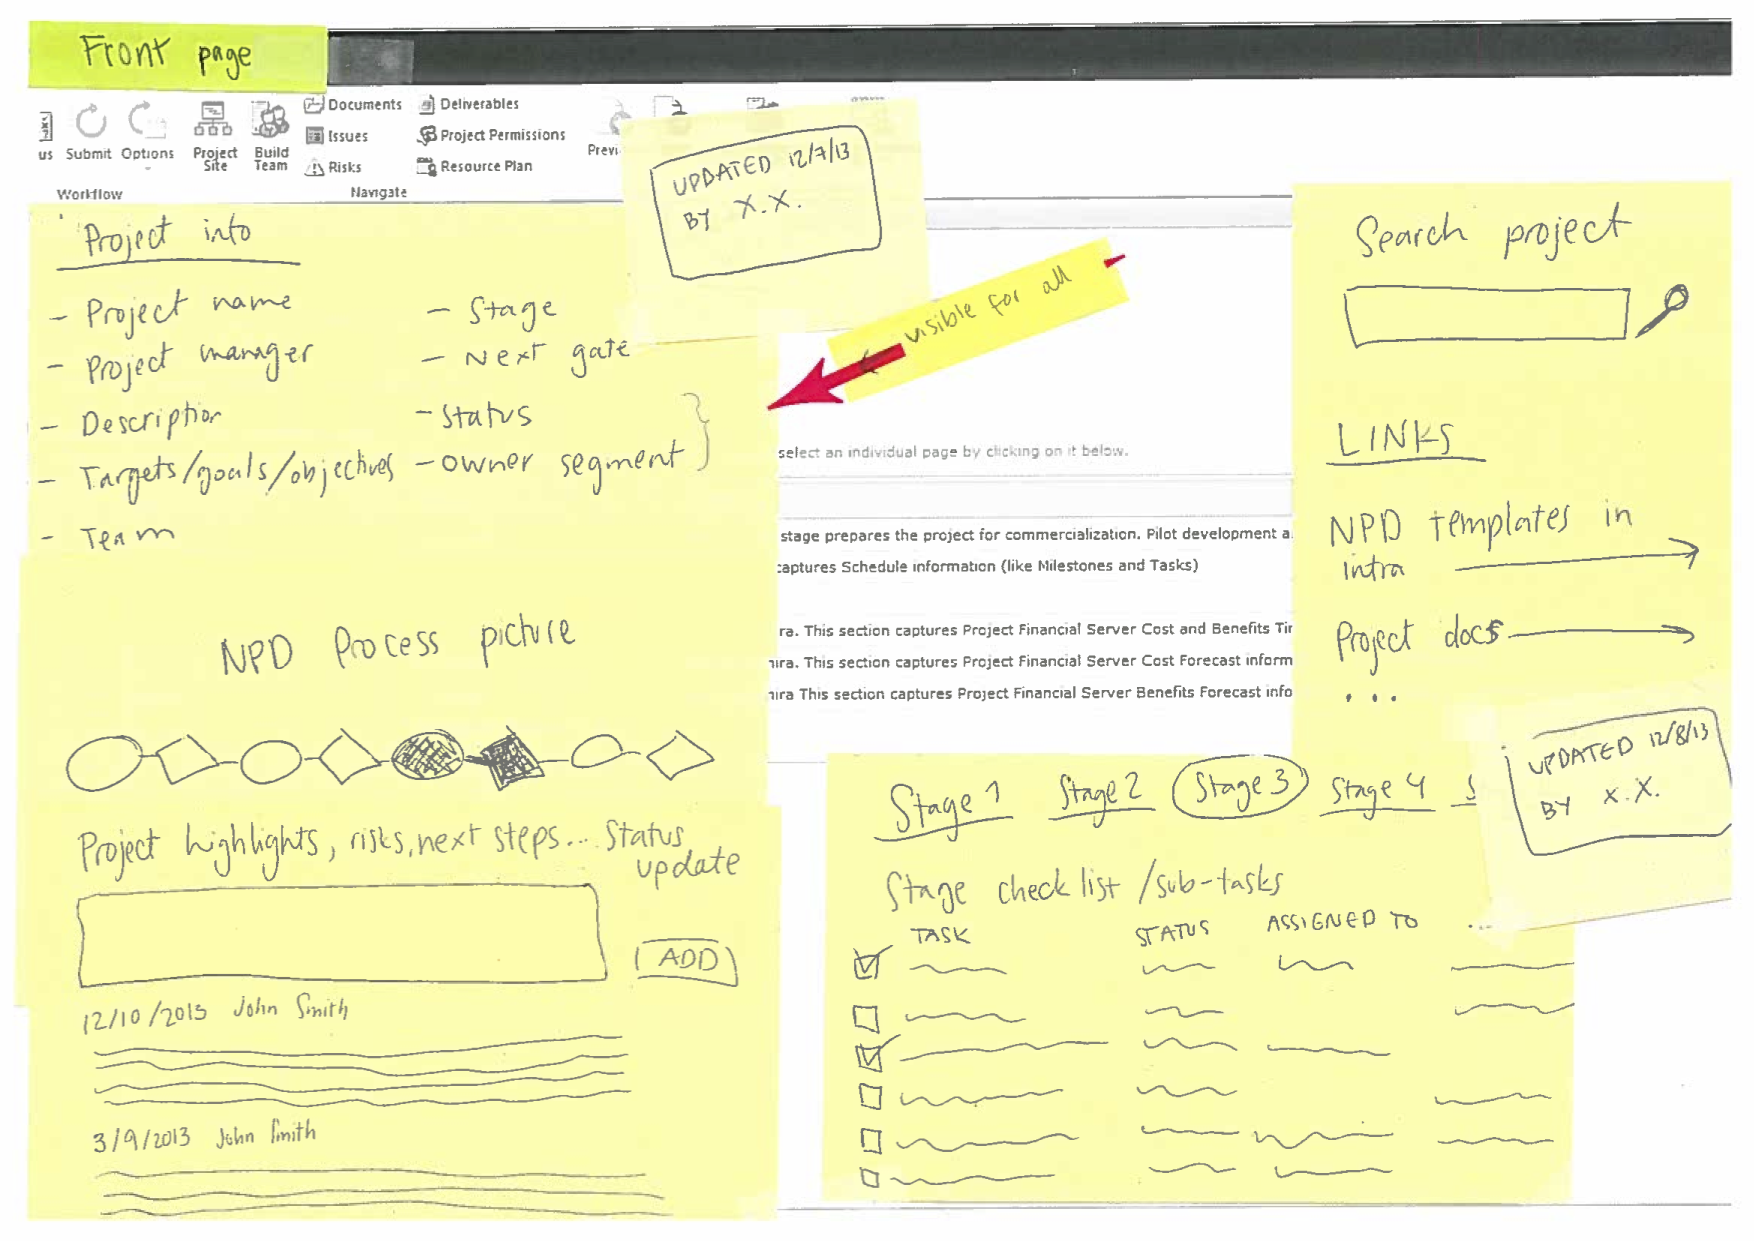 Front page
Documents
Deliverables
Issues
Project Permissions
us Submit Options Project Site Build Team
Risks
Resource Plan
Previ
Workflow
Navigate
UPDATED 12/7/13
BY X.X.
Project info
- Project name
- Project manager
- Description
- Targets/goals/objectives
- Team
- Stage
- Next gate
- Status
- owner segment
visible for all
select an individual page by clicking on it below.
stage prepares the project for commercialization. Pilot development a
captures Schedule information (like Milestones and Tasks)
ra. This section captures Project Financial Server Cost and Benefits Tir
nira. This section captures Project Financial Server Cost Forecast inform
nira This section captures Project Financial Server Benefits Forecast info
Search project
LINKS
NPD templates in
intra
Project docs
...
UPDATED 12/8/13
BY X.X.
NPD Process picture
Project highlights, risks, next steps... Status
update
ADD
12/10/2013 John Smith
3/9/2013 John Smith
Stage 1 Stage 2 Stage 3 Stage 4 S
Stage check list /sub-tasks
TASK STATUS ASSIGNED TO ...